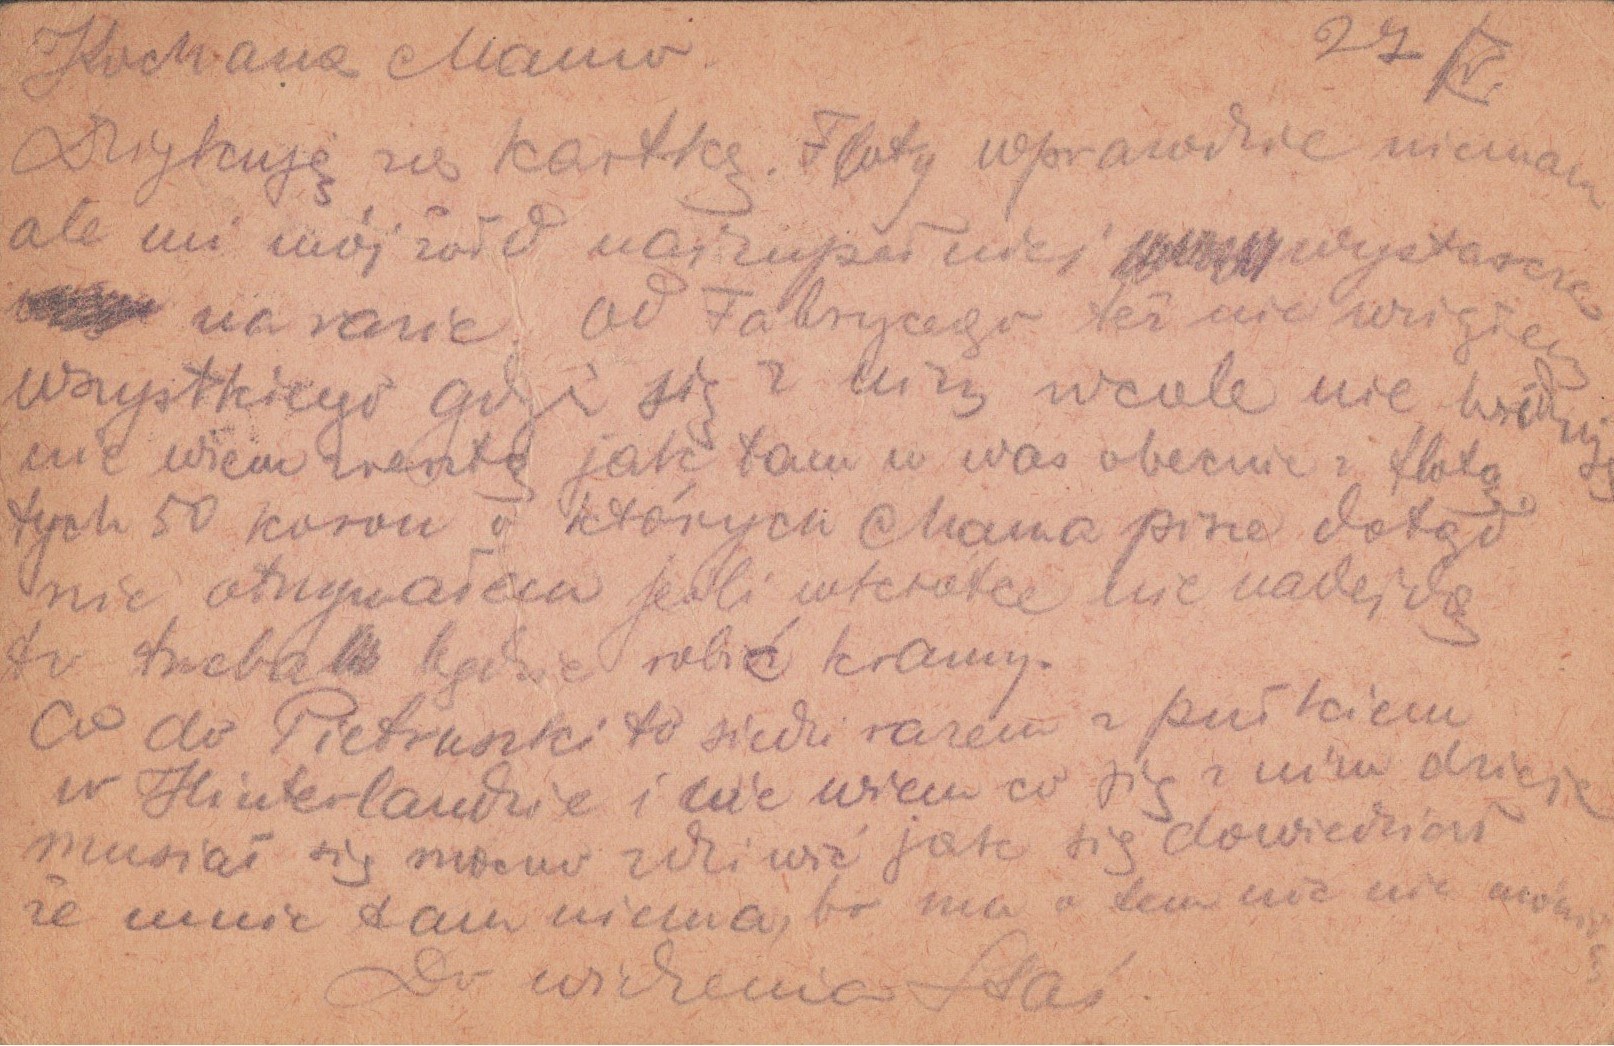 Kochana Mamo. 27 IV.
Dziękuję za kartkę. Floty wprawdzie niemam
ale mi mój żołd najzupełniej wystarcza
na razie. Od Fabrycego też nie wziąłem
wszystkiego gdyż się z nim wcale nie widuję
nie wiem zresztą jak tam u was obecnie z flotą.
tych 50 koron o których Mama pisze dotąd
nie otrzymałem jeśli wkrótce nie nadejdą
to trzeba będzie robić kramy.
Co do Pietruszki to siedzi razem z pułkiem
w Hinterlandzie i nie wiem co się z nim dzieje
musiał się mocno zdziwić jak się dowiedział
że mnie tam niema, bo mu o tem nic nie
Do widzenia Staś.